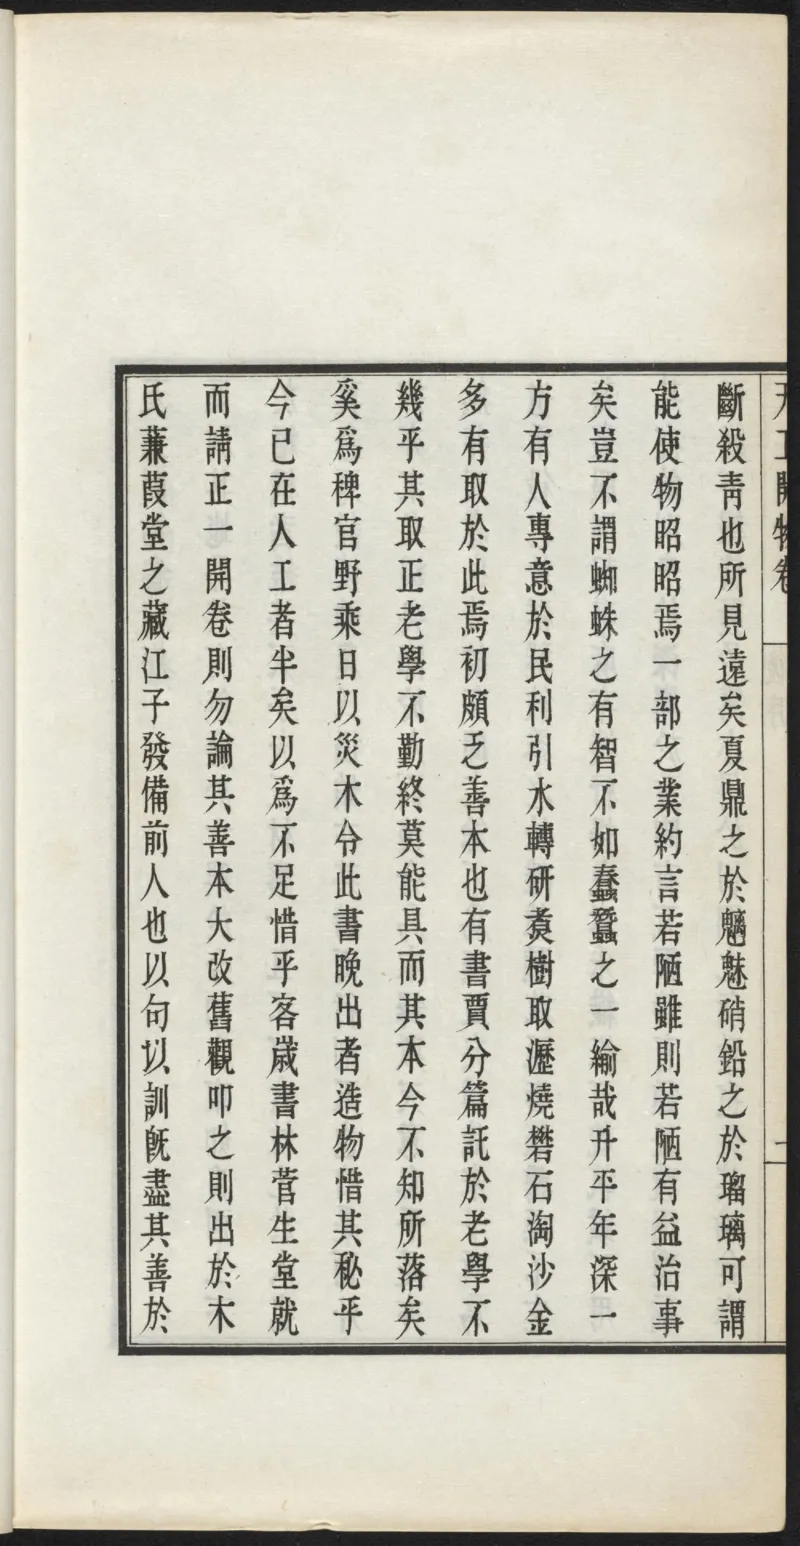 天工開物卷 一
斷殺靑也所見遠矣夏鼎之於魑魅硝鉛之於瑠璃可謂
能使物昭昭焉一部之業約言若陋雖則若陋有益治事
矣豈不謂蜘蛛之有智不如蠢蠶之一緰哉升平年深一
方有人專意於民利引水轉研煑樹取瀝燒礬石淘沙金
多有取於此焉初頗乏善本也有書賈分篇託於老學不
幾乎其取正老學不勤終莫能具而其本今不知所落矣
奚爲稗官野乘日以災木令此書晚出者造物惜其秘乎
今已在人工者半矣以爲不足惜乎客歲書林菅生堂就
而請正一開卷則勿論其善本大改舊觀叩之則出於木
氏蒹葭堂之藏江子發備前人也以句以訓旣盡其善於